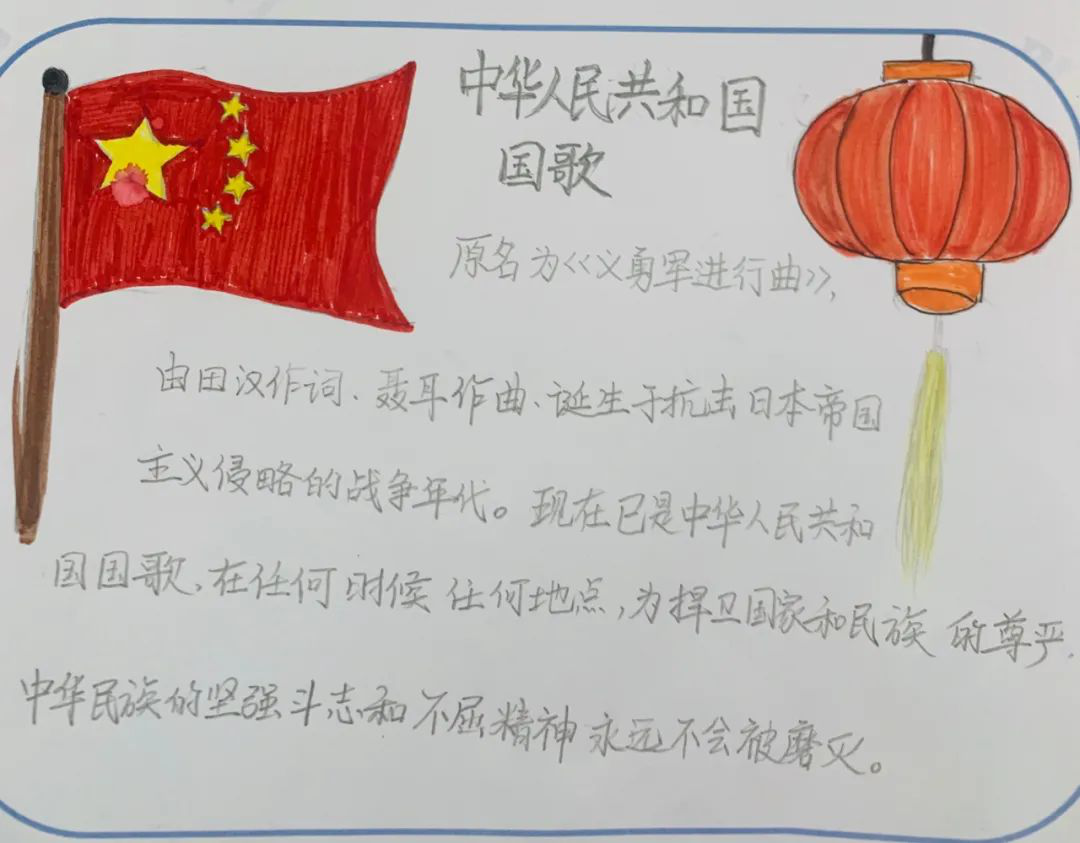 中华人民共和国
国歌
原名为《义勇军进行曲》,
由田汉作词、聂耳作曲、诞生于抗击日本帝国
主义侵略的战争年代。现在已是中华人民共和
国国歌、在任何时候任何地点,为捍卫国家和民族的尊严.
中华民族的坚强斗志和不屈精神永远不会被磨灭。